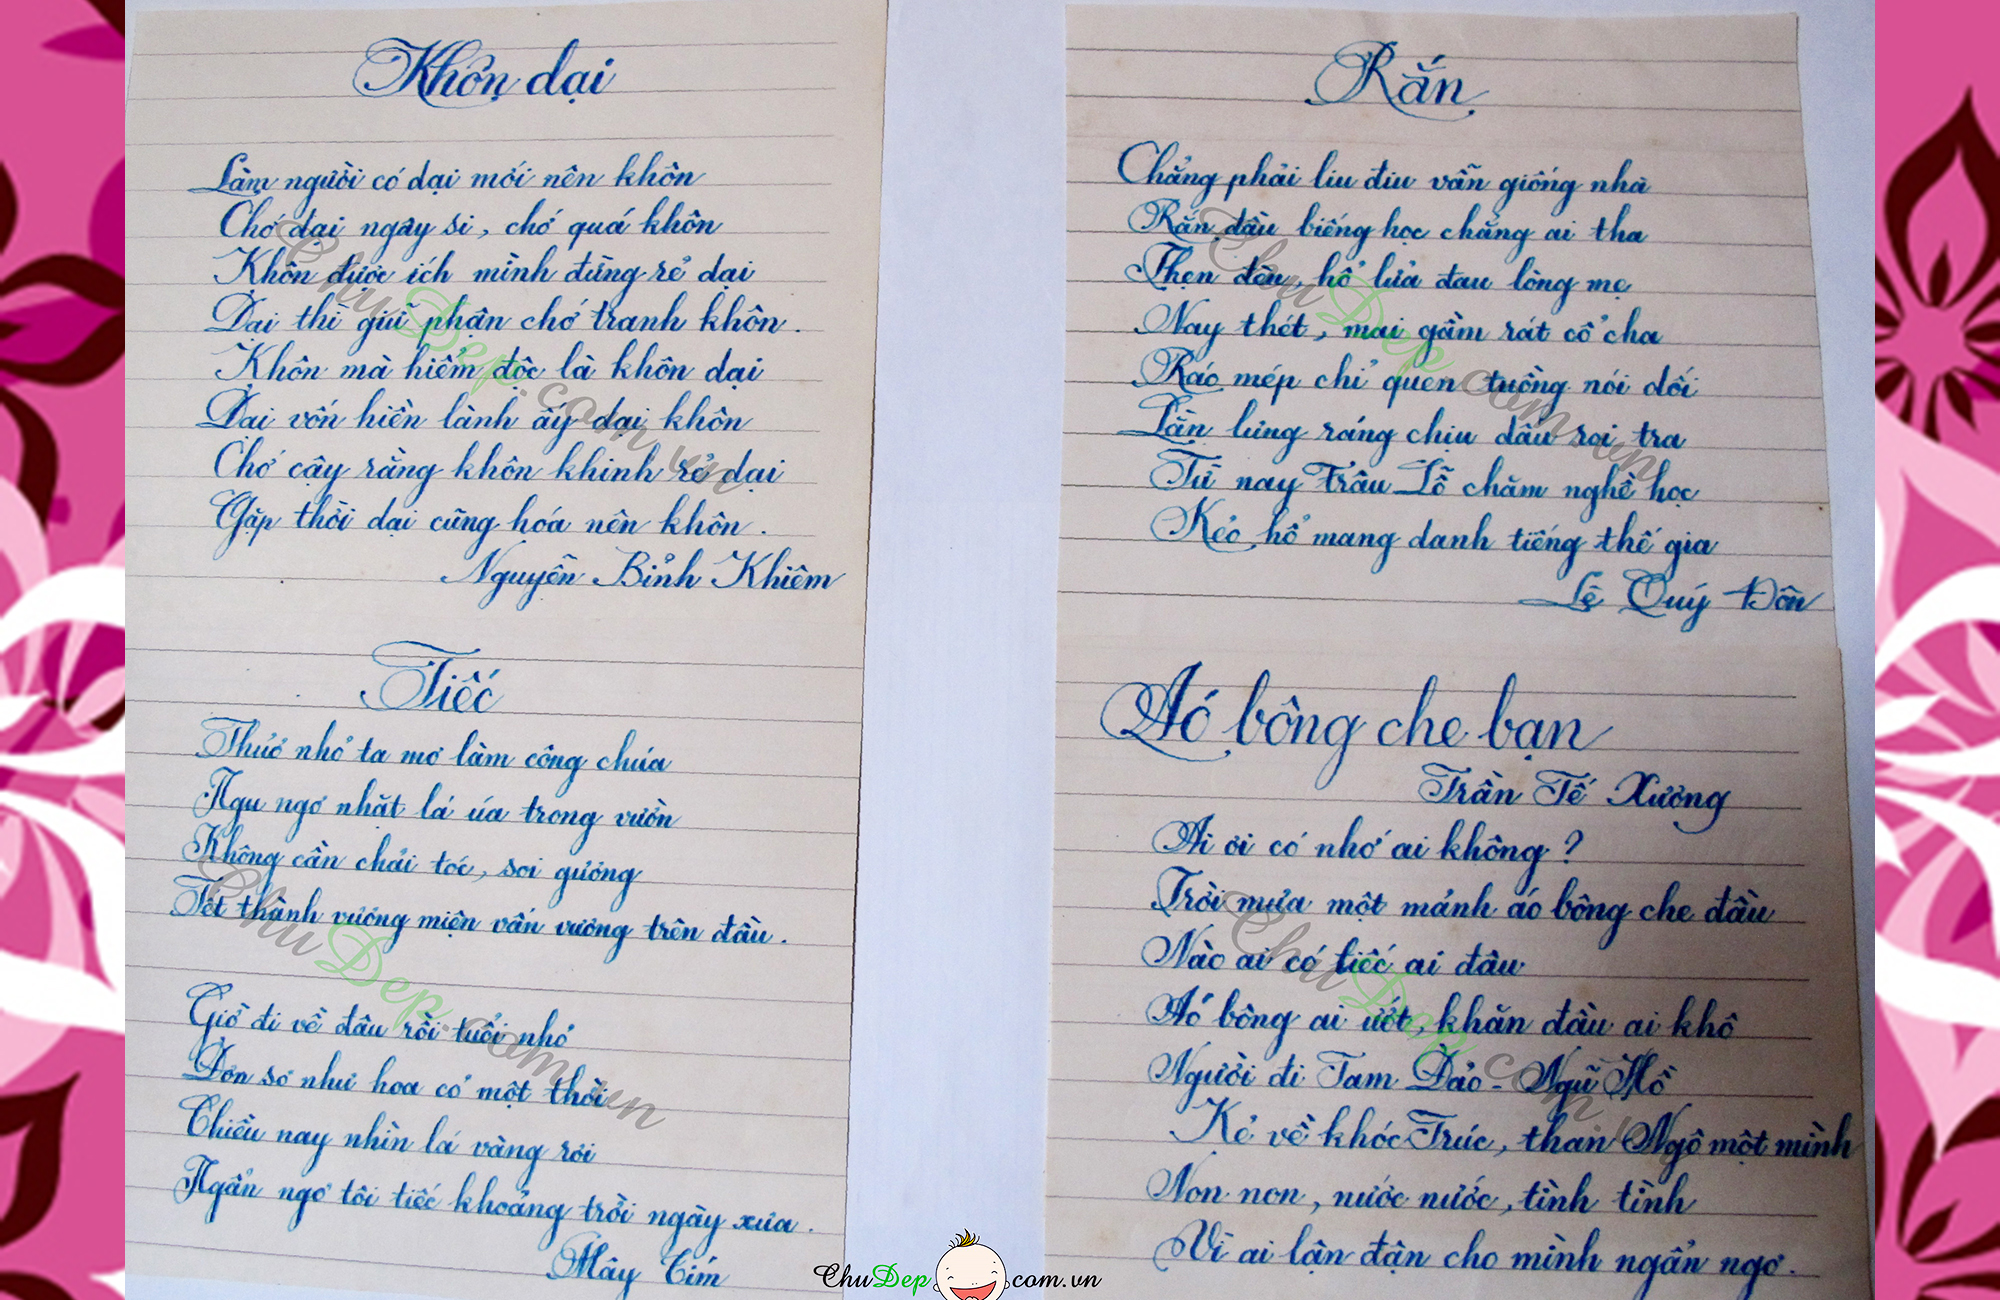 Khôn dại
Làm người có dại mới nên khôn
Chớ dại ngây si, chớ quá khôn
Khôn được ích mình đừng rẻ dại
Dại thì giữ phận chớ tranh khôn.
Khôn mà hiểm độc là khôn dại
Dại vốn hiền lành ấy dại khôn
Chớ cậy rằng khôn khinh rẻ dại
Gặp thời dại cũng hóa nên khôn.
Nguyễn Bỉnh Khiêm
Tiếc
Thuở nhỏ ta mơ làm công chúa
Ngu ngơ nhặt lá úa trong vườn
Không cần chải tóc, soi gương
Tết thành vương miện vấn vương trên đầu.
Giờ đi về đâu rồi tuổi nhỏ
Đơn sơ như hoa cỏ một thời
Chiều nay nhìn lá vàng rơi
Ngẩn ngơ tôi tiếc khoảng trời ngày xưa.
Mây Tím
Rắn
Chẳng phải liu điu vẫn giống nhà
Rắn đầu biếng học chẳng ai tha
Thẹn đèn, hổ lửa đau lòng mẹ
Nay thét, mai gầm rát cổ cha
Ráo mép chỉ quen tuồng nói dối
Lằn lưng ráng chịu dấu roi tra
Từ nay Trâu Lỗ chăm nghề học
Kẻo hổ mang danh tiếng thế gia
Lê Quý Đôn
Áo bông che bạn
Trần Tế Xương
Ai ơi có nhớ ai không?
Trời mưa một mảnh áo bông che đầu
Nào ai có tiếc ai đâu
Áo bông ai ướt, khăn đầu ai khô
Người đi Tam Đảo - Ngũ Hồ
Kẻ về khóc Trúc, than Ngô một mình
Non non, nước nước, tình tình
Vì ai lận đận cho mình ngẩn ngơ.
ChuDep.com.vn
ChuDep.com.vn
ChuDep.com.vn
ChuDep.com.vn
ChuDep.com.vn